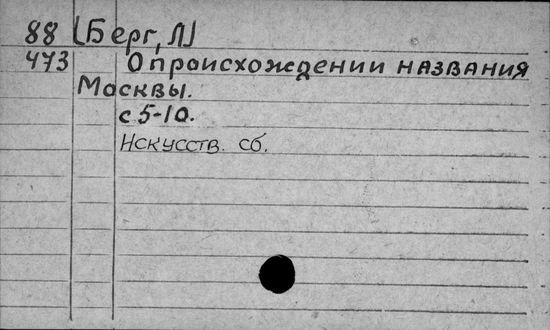 88 [Берг, Л]
473 О происхождении названия
Москвы.
с 5-10.
Искусств. сб.